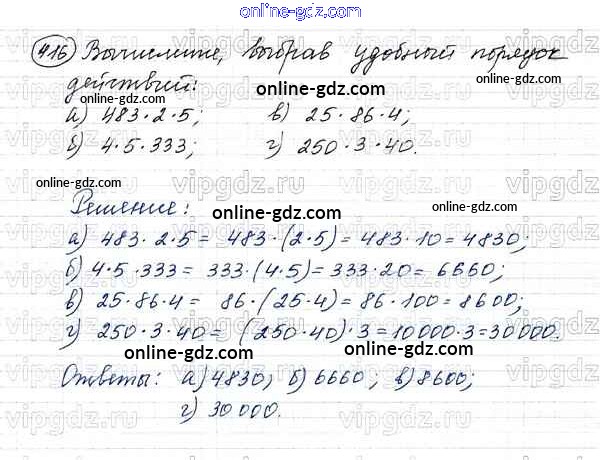 online-gdz.com
416 Вычислите, выбрав удобный порядок
действий:
online-gdz.com online-gdz.com
а) 483 · 2 · 5; в) 25 · 86 · 4;
б) 4 · 5 · 333; г) 250 · 3 · 40.
online-gdz.com
vipgdz.ru vipgdz.ru vipgdz.ru
Решение:
online-gdz.com
а) 483 · 2 · 5 = 483 · (2 · 5) = 483 · 10 = 4830;
б) 4 · 5 · 333 = 333 · (4 · 5) = 333 · 20 = 6660;
в) 25 · 86 · 4 = 86 · (25 · 4) = 86 · 100 = 8600;
г) 250 · 3 · 40 = (250 · 40) · 3 = 10 000 · 3 = 30 000.
online-gdz.com online-gdz.com
Ответы: а) 4830; б) 6660; в) 8600;
г) 30 000.